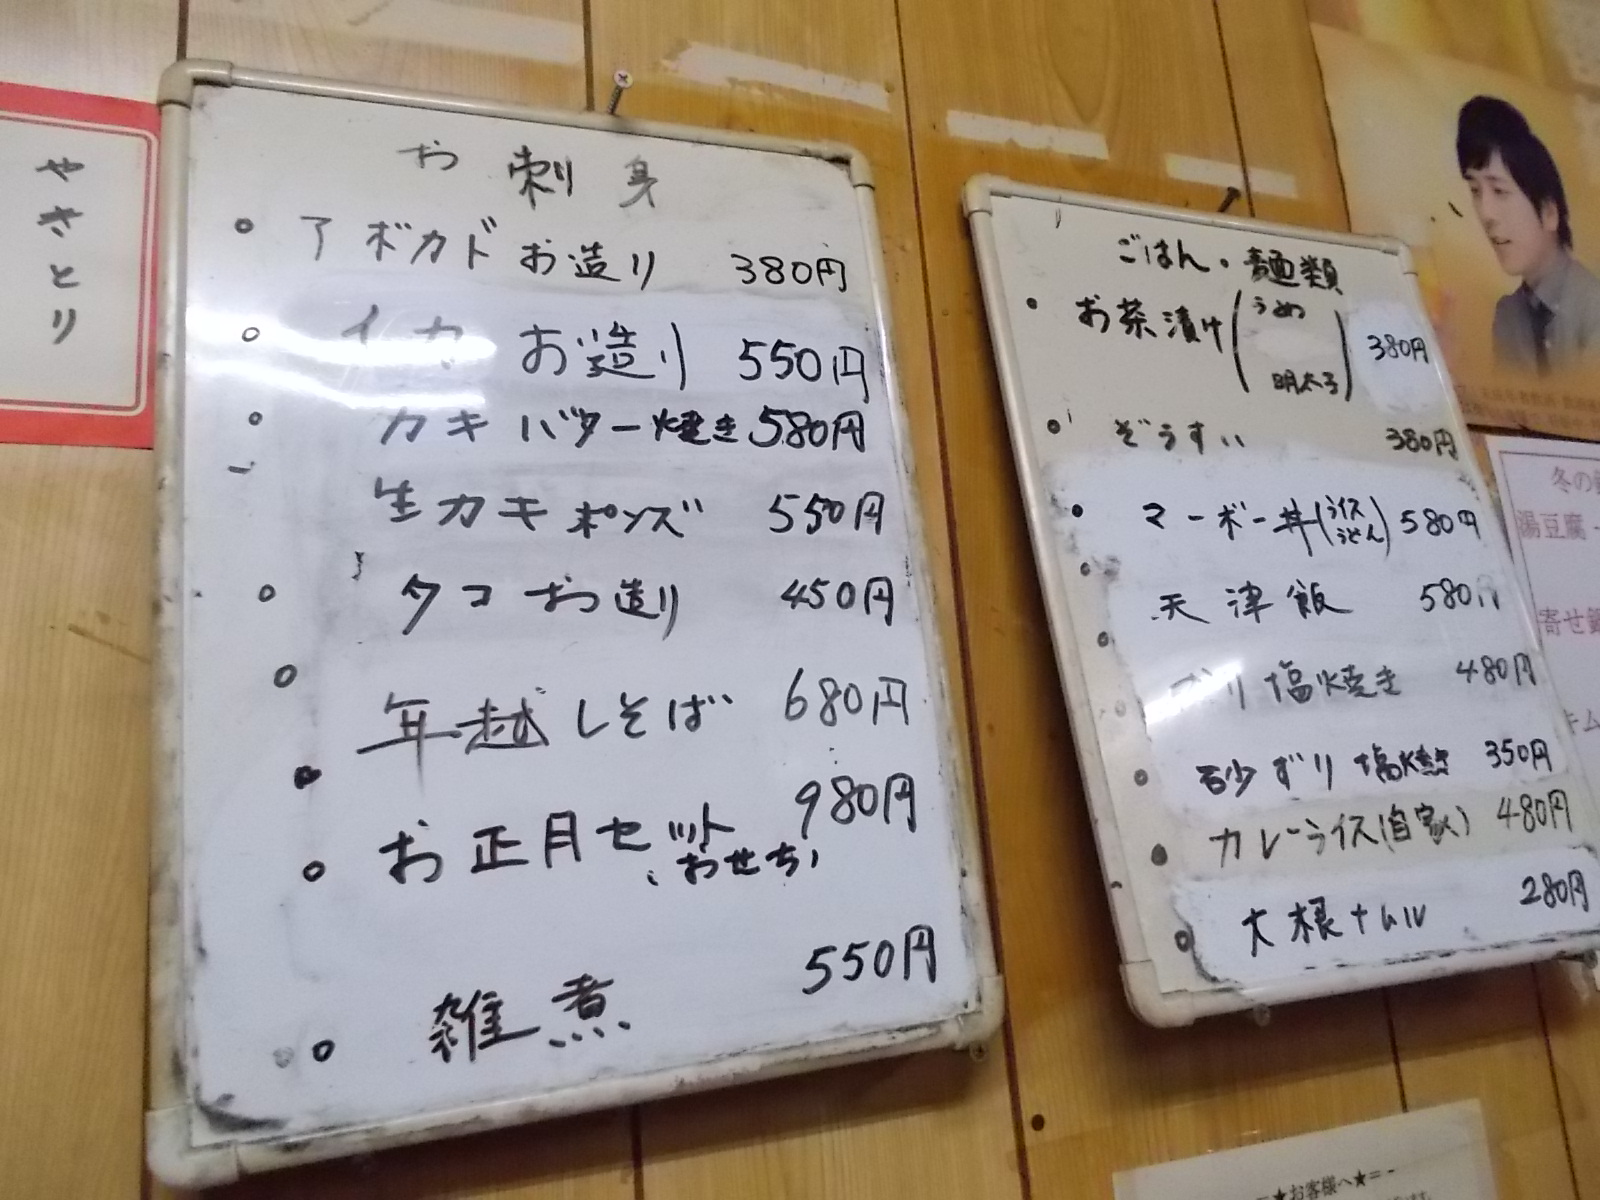 やさとり
お刺身
アボカドお造り 380円
イカお造り 550円
カキバター焼き 580円
生カキポンズ 550円
タコお造り 450円
年越しそば 680円
お正月セット 980円
(おせち)
雑煮 550円
ごはん・麺類
お茶漬け(うめ 明太子) 380円
ぞうすい 380円
マーボー丼(ライス うどん) 580円
天津飯 580円
塩焼き 480円
砂ずり塩焼 350円
カレーライス(自家) 480円
大根ナムル 280円
冬の
湯豆腐
寄せ鍋
キム
★お客様へ★